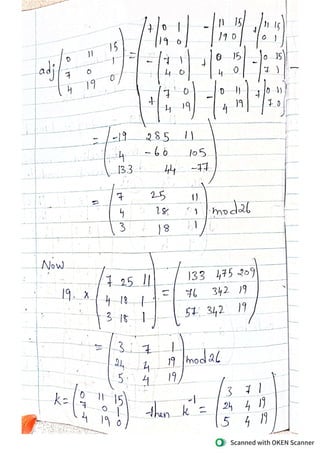 adj (0 11 15 / 7 0 1 / 4 19 0) = (+|0 1 / 19 0| -|11 15 / 19 0| +|11 15 / 0 1| / -|7 1 / 4 0| +|0 15 / 4 0| -|0 15 / 7 1| / +|7 0 / 4 19| -|0 11 / 4 19| +|0 11 / 7 0|)
= (-19 285 11
4 -60 105
133 44 -77)
= (7 25 11
4 18 1
3 18 1) mod 26
Now
19 × (7 25 11 / 4 18 1 / 3 18 1) = (133 475 209 / 76 342 19 / 57 342 19)
= (3 7 1
24 4 19
5 4 19) mod 26
k = (0 11 15 / 7 0 1 / 4 19 0) then k⁻¹ = (3 7 1 / 24 4 19 / 5 4 19)
Scanned with OKEN Scanner